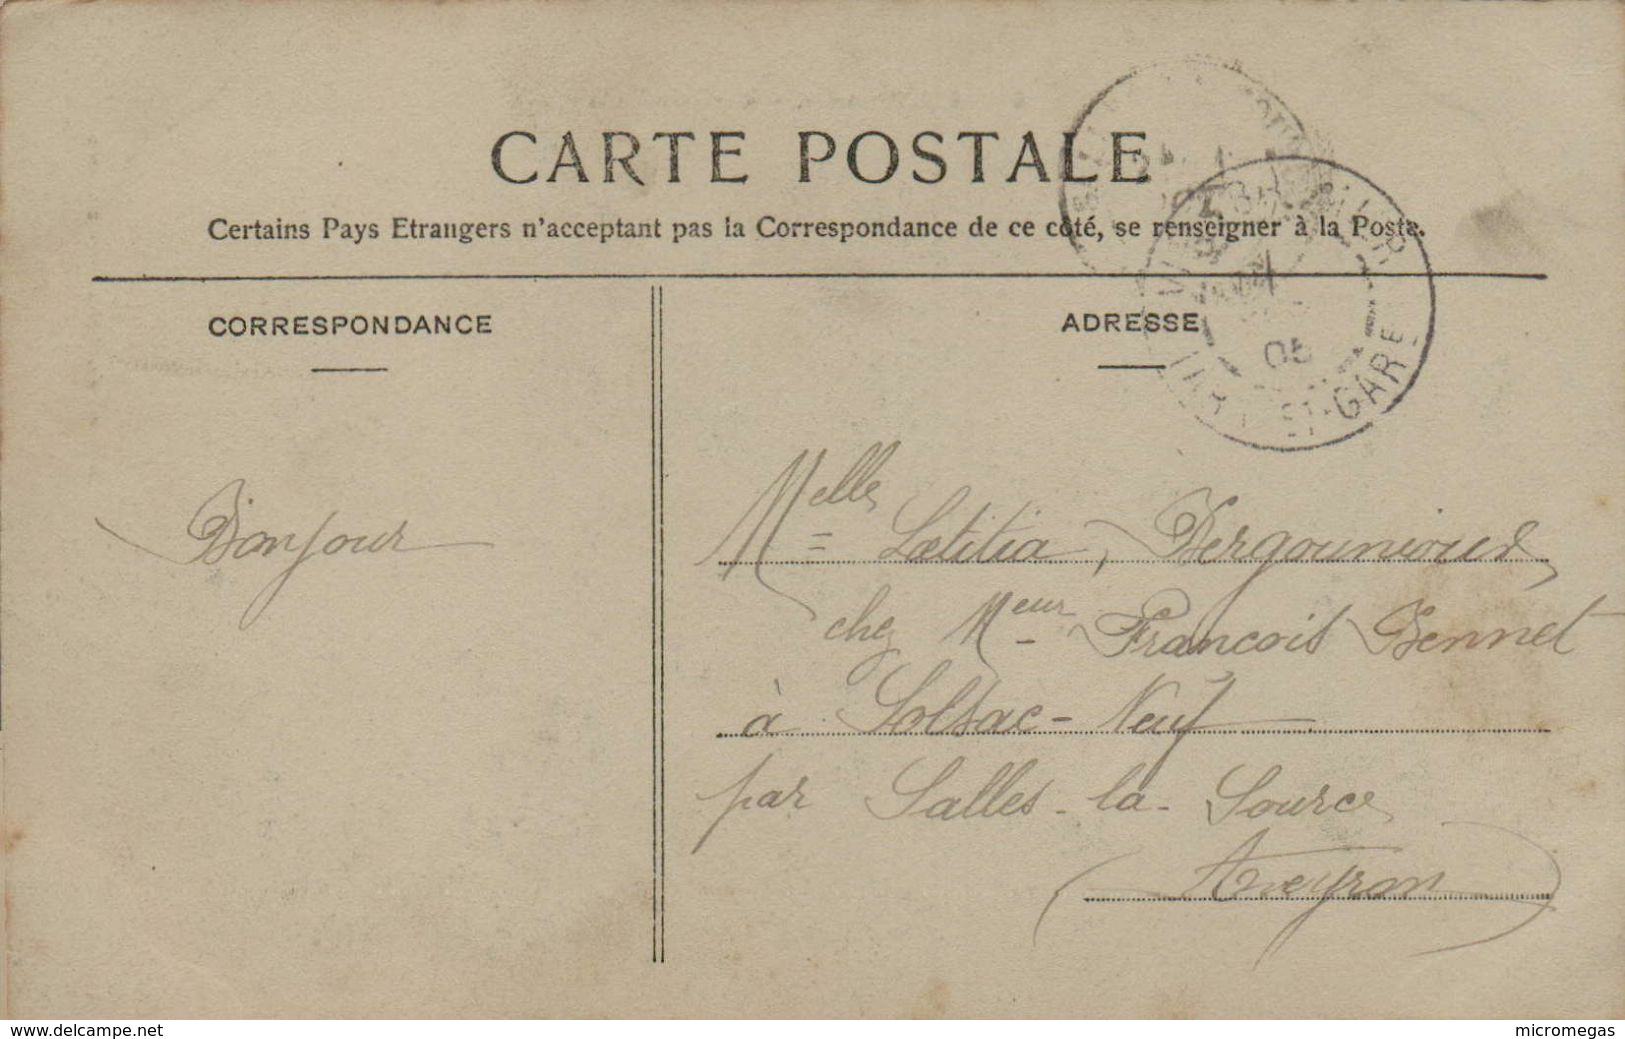 CARTE POSTALE
Certains Pays Etrangers n'acceptent pas la Correspondance de ce côté, se renseigner à la Poste.
CORRESPONDANCE
ADRESSE
05
GARE
Bonjour
Melle Lætitia Bergounioux
chez Meur Francois Bennet
à Solsac-Neuf
par Salles-la-Source
(Aveyron)
www.delcampe.net
micromegas